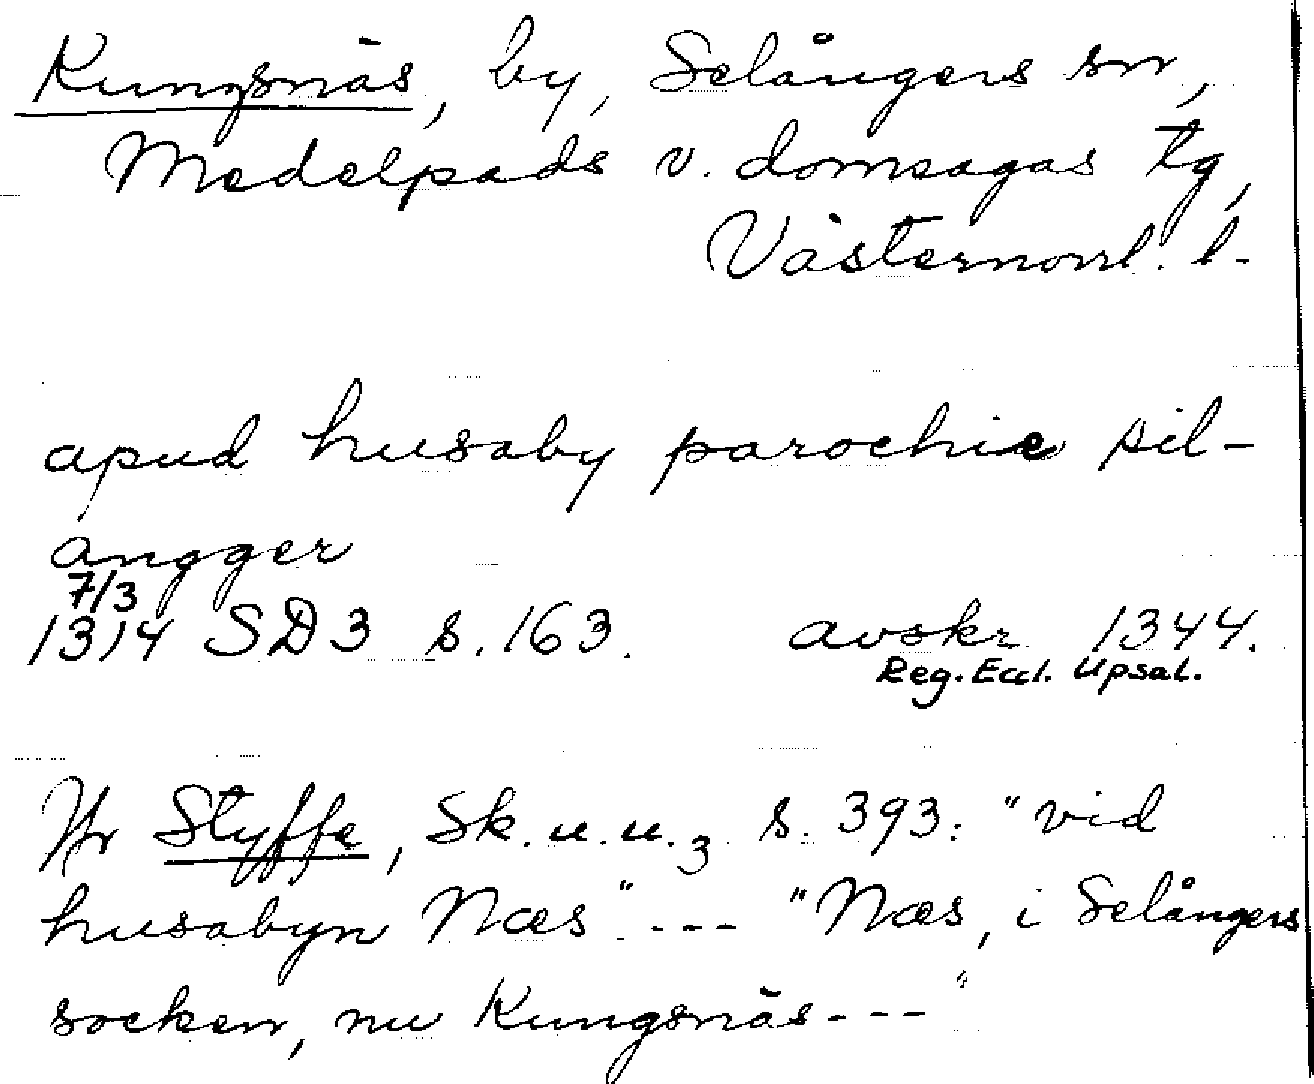 Kungsnäs, by, Selångers sn,
Medelpads v. domsagas tg,
Västernorrl. l.
apud husaby parochie sil-
angger
7/3
1314 SD 3 s. 163. avskr. 1344.
Reg. Eccl. Upsal.
Jfr Styffe, Sk. u. u. 3 s. 393: "vid
husabyn Næs" --- "Næs, i Selångers
socken, nu Kungsnäs---"